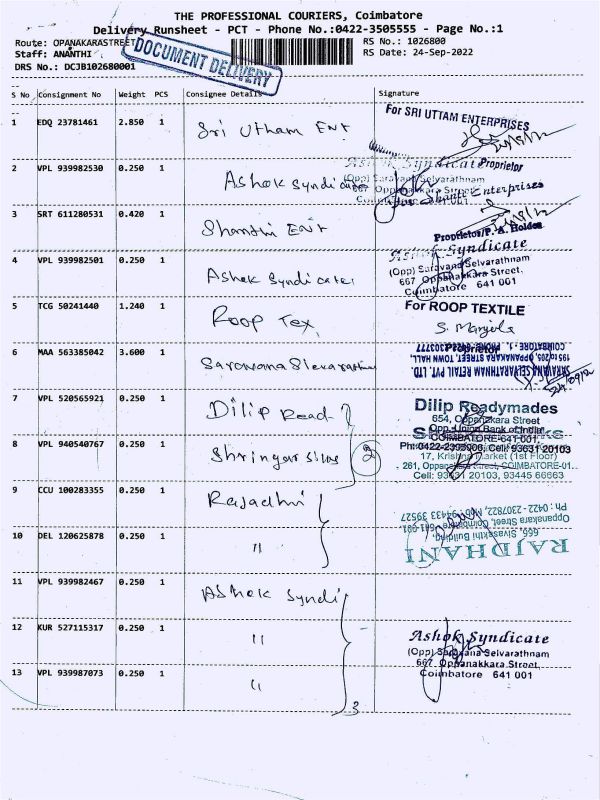 THE PROFESSIONAL COURIERS, Coimbatore
Delivery Runsheet - PCT - Phone No.:0422-3505555 - Page No.:1
Route: OPANAKARASTREET
RS No.: 1026800
Staff: ANANTHI
RS Date: 24-Sep-2022
DRS No.: DCJB102680001
DOCUMENT DELIVERY
S No Consignment No Weight PCS Consignee Details Signature
1 EDQ 23781461 2.850 1 Sri Uttham Ent
For SRI UTTAM ENTERPRISES
Proprietor
2 VPL 939982530 0.250 1 Ashok Syndicate
Ashok Syndicate
(Opp) Saravana Selvarathnam
667 Oppanakkara Street
Coimbatore 641 001
For Shanti Enterprises
3 SRT 611280531 0.420 1 Shanthi Ent
Proprietor/P. A. Holder
4 VPL 939982501 0.250 1 Ashok Syndicate
Ashok Syndicate
(Opp) Saravana Selvarathnam
667 Oppanakkara Street,
Coimbatore 641 001
5 TCG 50241440 1.240 1 Roop Tex
For ROOP TEXTILE
S. Manjula
Proprietor
6 MAA 563385042 3.600 1 Sarawana
SARAVANA SELVARATHNAM RETAIL PVT. LTD.
195 to 205, OPPANAKARA STREET, TOWN HALL,
COIMBATORE - 1. PHONE: 0422 2303777
7 VPL 520565921 0.250 1 Dilip Read
Dilip Readymades
654, Oppanakara Street
Opp. Union Bank of India
COIMBATORE-641 001
Ph: 0422-2393906, Cell: 93631 20103
8 VPL 940540767 0.250 1 Shringar Silks 2
17, Krishna Market (1st Floor)
261, Oppanakara Street, COIMBATORE-01.
Cell: 93631 20103, 93445 66663
9 CCU 100283355 0.250 1 Rajadhni
10 DEL 120625878 0.250 1 "
RAJDHANI
666, Sivasakthi Building,
Oppanakara Street, Coimbatore - 641 001
Ph : 0422- 2307827, Mob : 94433 39527
11 VPL 939982467 0.250 1 Ashok Syndi
12 KUR 527115317 0.250 1 "
Ashok Syndicate
(Opp) Saravana Selvarathnam
667 Oppanakkara Street,
Coimbatore 641 001
13 VPL 939987073 0.250 1 "
3